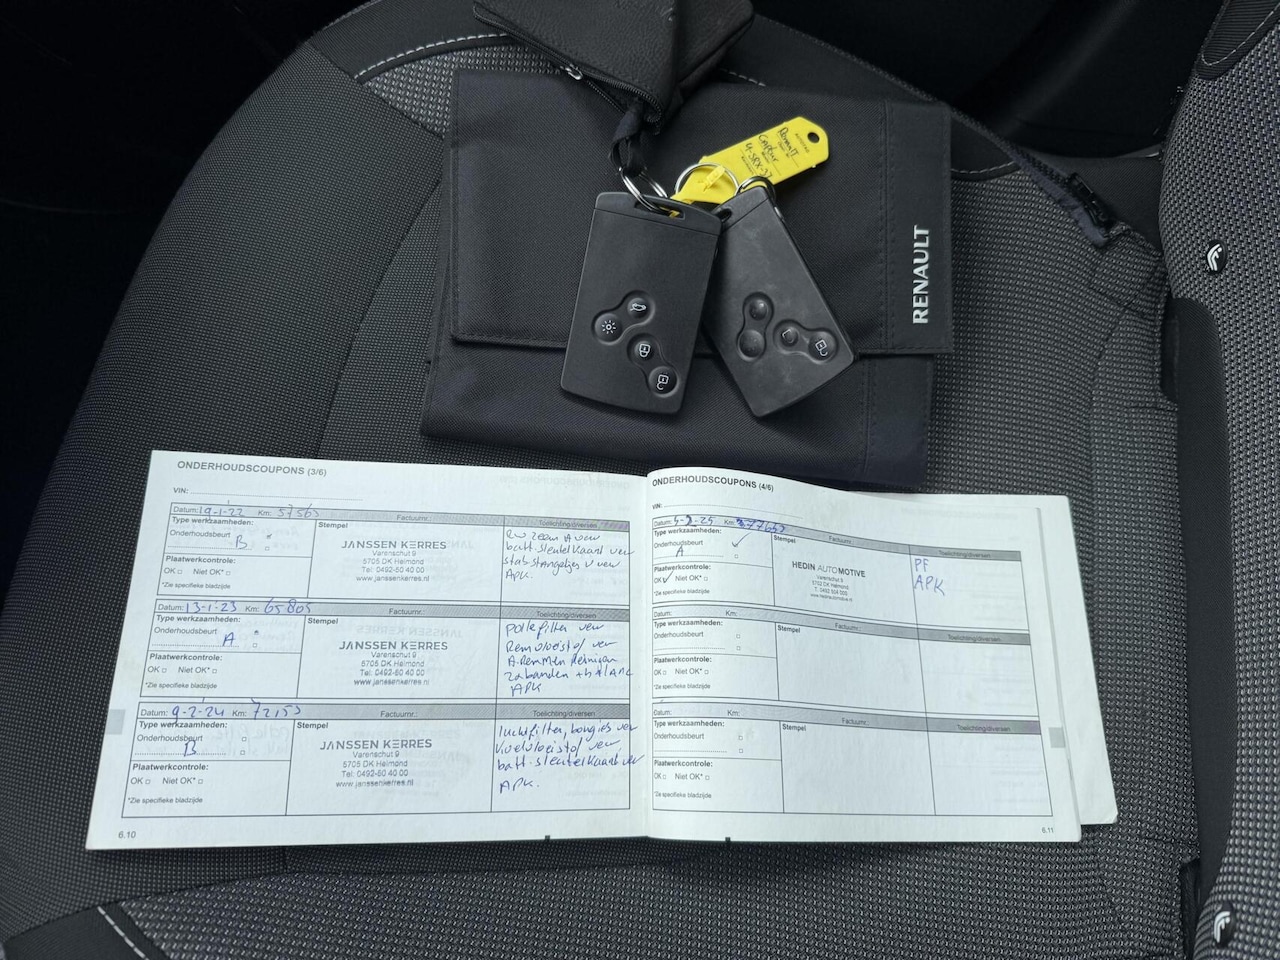 Renault
Captur
4-SRX-
RENAULT
ONDERHOUDSCOUPONS (3/6)
VIN:
Datum: 19-1-22 Km: 57565 Factuurnr.:
Type werkzaamheden: Stempel Toelichting/diversen
Onderhoudsbeurt
B
Plaatwerkcontrole:
OK Niet OK*
*Zie specifieke bladzijde
JANSSEN KERRES
Varenschut 9
5705 DK Helmond
Tel: 0492-60 40 00
www.janssenkerres.nl
batt sleutelkaart ver
APK.
Datum: 13-1-23 Km: 65805 Factuurnr.:
Type werkzaamheden: Stempel Toelichting/diversen
Onderhoudsbeurt
A
Plaatwerkcontrole:
OK Niet OK*
*Zie specifieke bladzijde
JANSSEN KERRES
Varenschut 9
5705 DK Helmond
Tel: 0492-60 40 00
www.janssenkerres.nl
Pollefilter ver
Remvloeistof ver
A Remmen Reinigen
APK
Datum: 9-2-24 Km: 72153 Factuurnr.:
Type werkzaamheden: Stempel Toelichting/diversen
Onderhoudsbeurt
B
Plaatwerkcontrole:
OK Niet OK*
*Zie specifieke bladzijde
JANSSEN KERRES
Varenschut 9
5705 DK Helmond
Tel: 0492-60 40 00
www.janssenkerres.nl
luchtfilter, bougies ver
Koelvloeistof ver
batt-sleutelkaart ver
APK.
6.10
ONDERHOUDSCOUPONS (4/6)
VIN:
Datum: Km: Factuurnr.:
Type werkzaamheden: Stempel Toelichting/diversen
Onderhoudsbeurt
A
Plaatwerkcontrole:
OK Niet OK*
*Zie specifieke bladzijde
HEDIN AUTOMOTIVE
Varenschut 9
5705 DK Helmond
www.hedinautomotive.nl
PF
APK
Datum: Km: Factuurnr.:
Type werkzaamheden: Stempel Toelichting/diversen
Onderhoudsbeurt
Plaatwerkcontrole:
OK Niet OK*
*Zie specifieke bladzijde
Datum: Km: Factuurnr.:
Type werkzaamheden: Stempel Toelichting/diversen
Onderhoudsbeurt
Plaatwerkcontrole:
OK Niet OK*
*Zie specifieke bladzijde
6.11